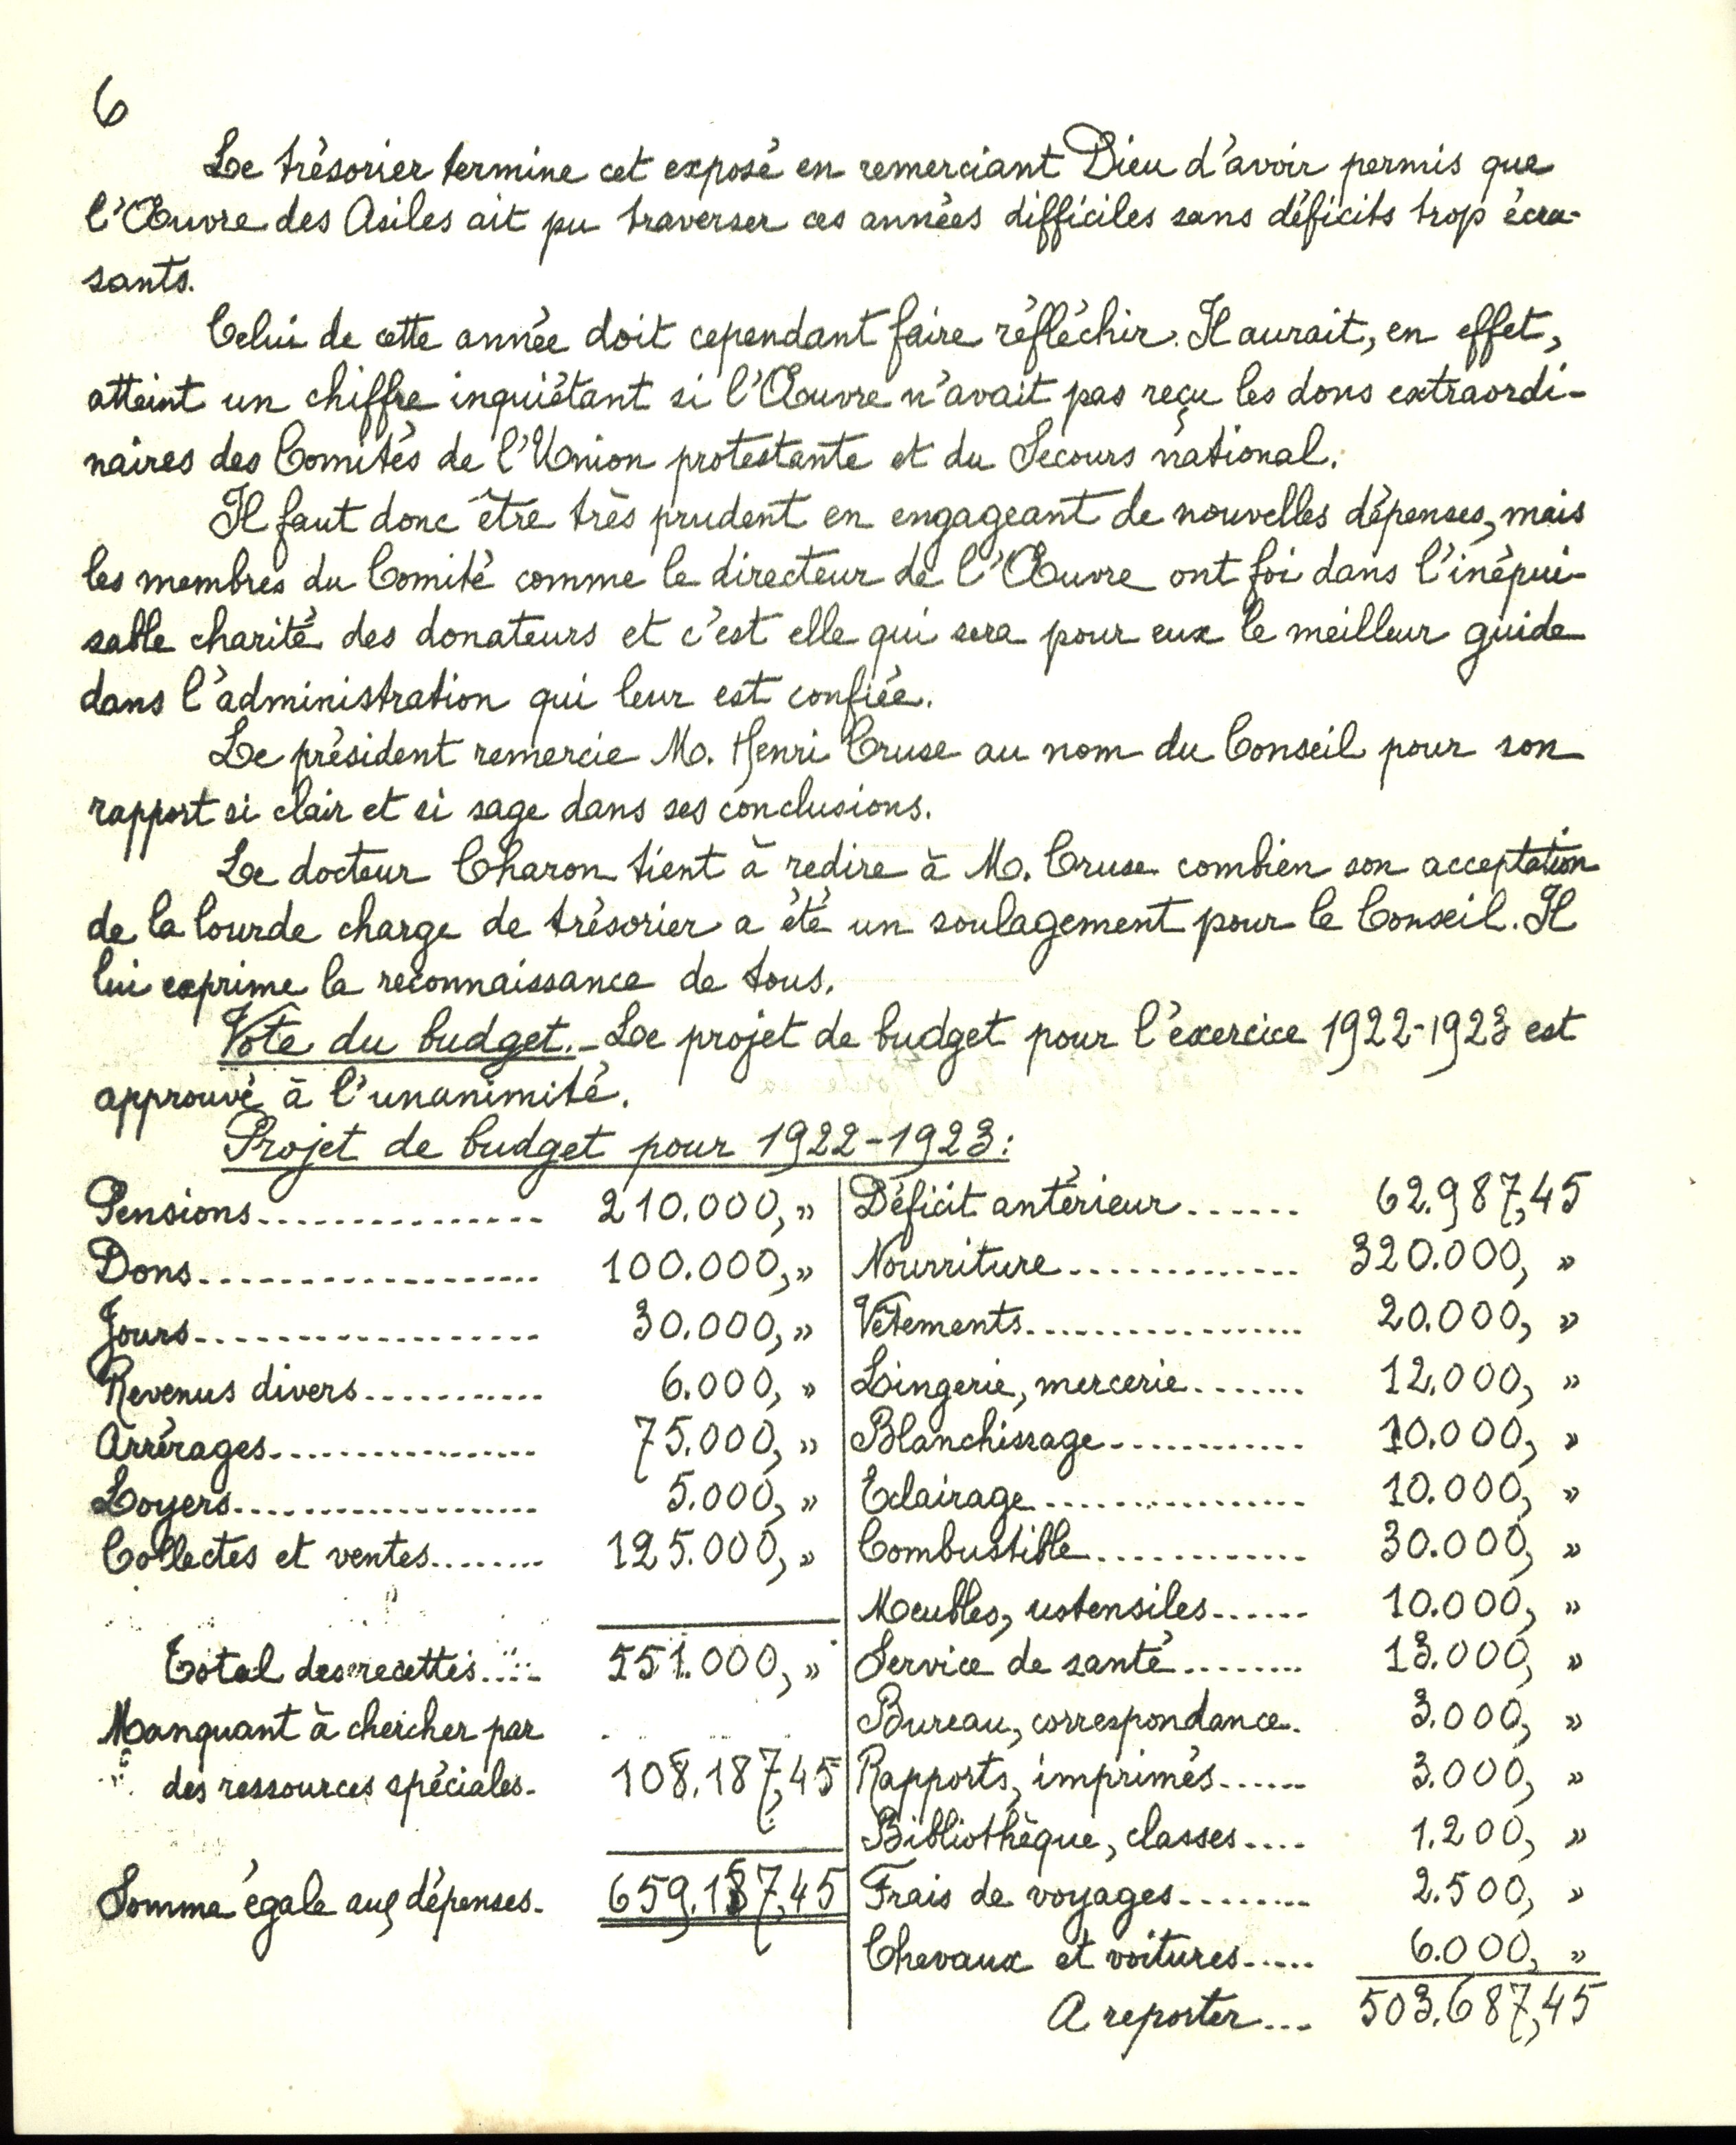 6
Le trésorier termine cet exposé en remerciant Dieu d'avoir permis que
l'Œuvre des Asiles ait pu traverser ces années difficiles sans déficits trop écra-
sants.
Celui de cette année doit cependant faire réfléchir. Il aurait, en effet,
atteint un chiffre inquiétant si l'Œuvre n'avait pas reçu les dons extraordi-
naires des Comités de l'Union protestante et du Secours national.
Il faut donc être très prudent en engageant de nouvelles dépenses, mais
les membres du Comité comme le directeur de l'Œuvre ont foi dans l'inépui-
sable charité des donateurs et c'est elle qui sera pour eux le meilleur guide
dans l'administration qui leur est confiée.
Le président remercie M. Henri Cruse au nom du Conseil pour son
rapport si clair et si sage dans ses conclusions.
Le docteur Charon tient à redire à M. Cruse combien son acceptation
de la lourde charge de trésorier a été un soulagement pour le Conseil. Il
lui exprime la reconnaissance de tous.
Vote du budget. - Le projet de budget pour l'exercice 1922-1923 est
approuvé à l'unanimité.
Projet de budget pour 1922-1923:
Pensions............... 210.000, »
Dons................... 100.000, »
Jours................... 30.000, »
Revenus divers........... 6.000, »
Arrérages................ 75.000, »
Loyers................... 5.000, »
Collectes et ventes........ 125.000, »
Total des recettes...... 551.000, »
Manquant à chercher par
des ressources spéciales. 108.187,45
Somme égale aux dépenses. 659.187,45
Déficit antérieur...... 62.987,45
Nourriture............. 320.000, »
Vêtements................. 20.000, »
Lingerie, mercerie....... 12.000, »
Blanchissage............ 10.000, »
Eclairage................ 10.000, »
Combustible............. 30.000, »
Meubles, ustensiles...... 10.000, »
Service de santé........ 13.000, »
Bureau, correspondance. 3.000, »
Rapports, imprimés...... 3.000, »
Bibliothèque, classes.... 1.200, »
Frais de voyages........ 2.500, »
Chevaux et voitures..... 6.000, »
A reporter... 503.687,45